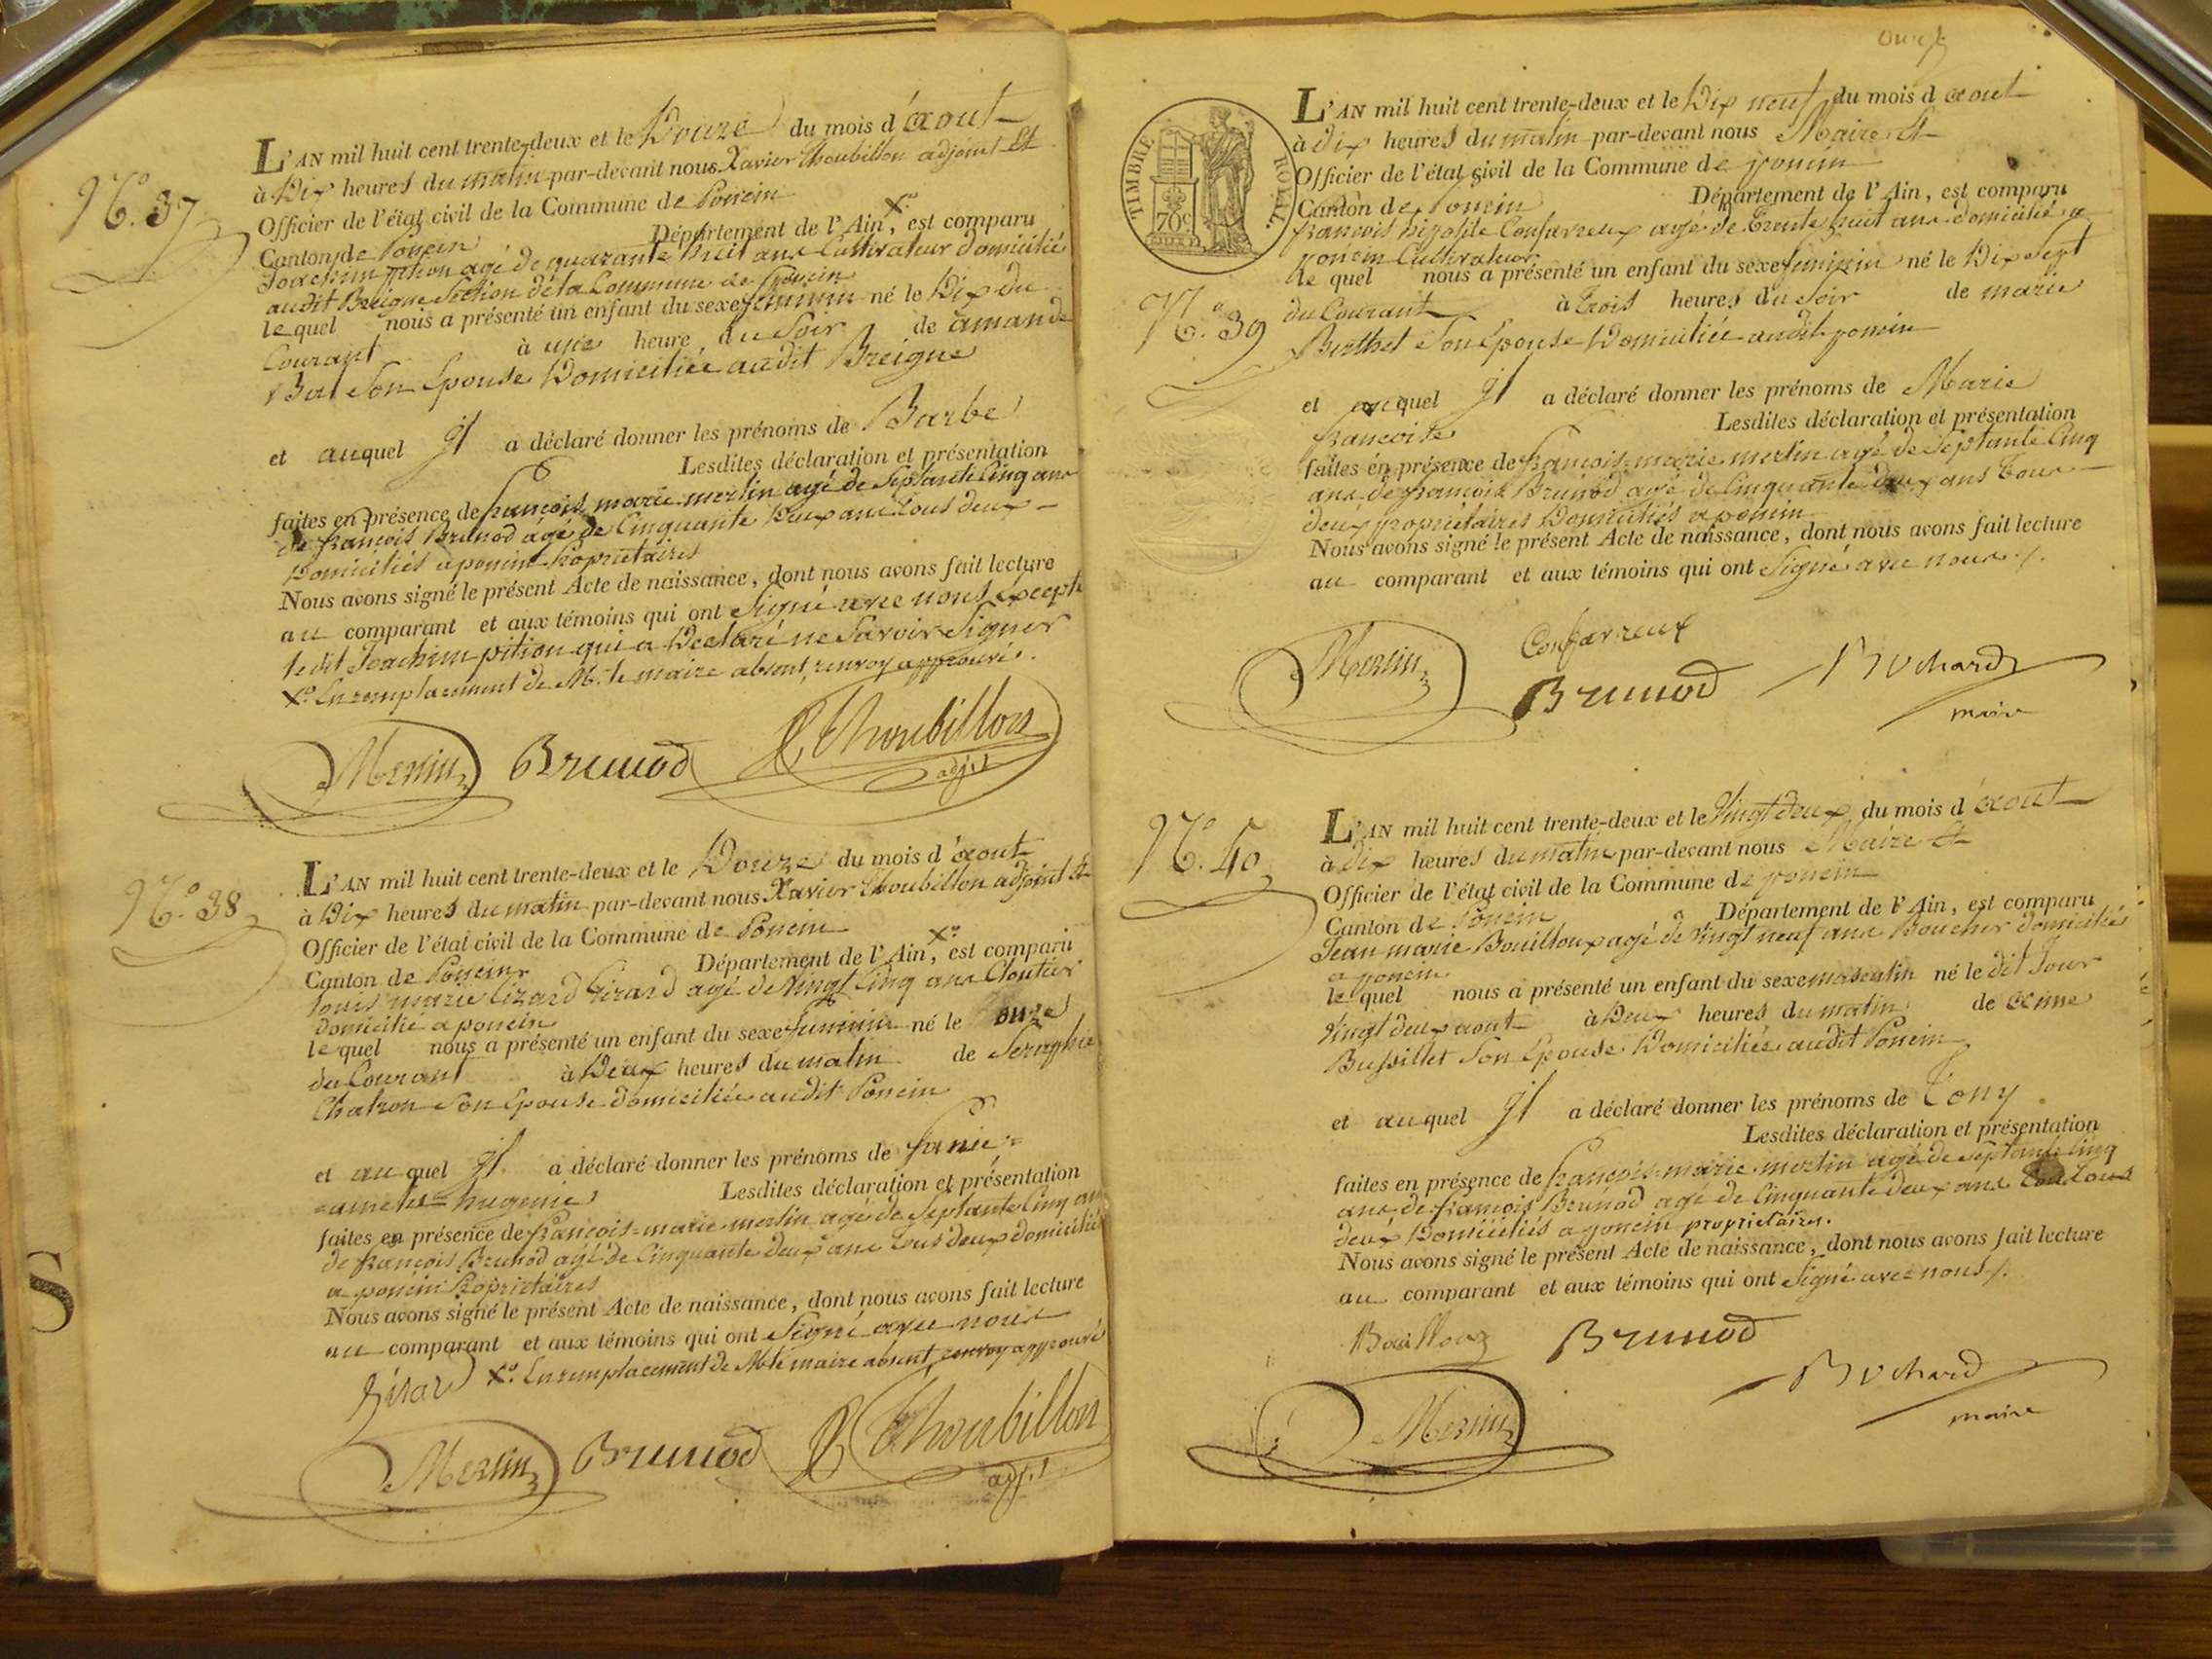 N.º 37
L'AN mil huit cent trente-deux et le Douze du mois d'aout
à Dix heures du matin par-devant nous Xavier Thoubillon adjoint et
Officier de l'état civil de la Commune de Poncin Xº
Canton de Poncin Département de l'Ain, est comparu
Joachim pition agé de quarante huit ans Cultivateur domicilié
audit Breigne Section de la Commune de Poncin
lequel nous a présenté un enfant du sexe feminin né le Dix du
Courant à une heure du Soir de amande
Bal Son Epouse Domiciliée audit Breigne
et auquel Il a déclaré donner les prénoms de Barbe
Lesdites déclaration et présentation
faites en présence de françois marie merlin agé de Septante Cinq ans
de françois Brunod agé de Cinquante Deux ans tous deux
Domiciliés a poncin Propriétaires
Nous avons signé le présent Acte de naissance, dont nous avons fait lecture
au comparant et aux témoins qui ont Signé avec nous Excepté
le dit Joachim pition qui a Déclaré ne Savoir Signer
Xº. En remplacement de Mr. le maire absent, renvoy approuvé.
Merlin Brunod X Thoubillon
adjt
N.º 38
L'AN mil huit cent trente-deux et le Douze du mois d'aout
à Dix heures du matin par-devant nous Xavier Thoubillon adjoint et
Officier de l'état civil de la Commune de Poncin Xº
Canton de Poncin Département de l'Ain, est comparu
Louis marie Girard agé de Vingt Cinq ans Cloutier
domicilié a poncin
lequel nous a présenté un enfant du sexe feminin né le onze
du Courant à Deux heures du matin de Seraphie
Chatron Son Epouse domiciliée audit Poncin
et auquel Il a déclaré donner les prénoms de fanie=
=amelie=hugenie Lesdites déclaration et présentation
faites en présence de françois=marie merlin agé de Septante Cinq ans
de françois Brunod agé de Cinquante deux ans tous deux domiciliés
a poncin Propriétaires
Nous avons signé le présent Acte de naissance, dont nous avons fait lecture
au comparant et aux témoins qui ont Signé avec nous
Xº. En remplacement de Mr le maire absent, renvoy approuvé
Girard
Merlin Brunod X Thoubillon
adjt
onze
TIMBRE ROYAL.
70c
N.º 39
L'AN mil huit cent trente-deux et le Dix neuf du mois d'aout
à Dix heures du matin par-devant nous Maire et
Officier de l'état civil de la Commune de poncin
Canton de Poncin Département de l'Ain, est comparu
françois Confavreux agé de Trente huit ans domicilié a
Poncin Cultivateur
lequel nous a présenté un enfant du sexe feminin né le Dix Sept
du Courant à trois heures du Soir de marie
Berthet Son Epouse Domiciliée audit poncin
et auquel Il a déclaré donner les prénoms de Marie
françoise Lesdites déclaration et présentation
faites en présence de françois=marie merlin agé de Septante Cinq
ans de françois Brunod agé de Cinquante deux ans tous
deux propriétaires Domiciliés a poncin
Nous avons signé le présent Acte de naissance, dont nous avons fait lecture
au comparant et aux témoins qui ont Signé avec nous ./.
Merlin Confavreux
Brunod Bochard
maire
N.º 40
L'AN mil huit cent trente-deux et le Vingt Deux du mois d'aout
à Dix heures du matin par-devant nous Maire et
Officier de l'état civil de la Commune de poncin
Canton de Poncin Département de l'Ain, est comparu
Jean marie Bouilloux agé de Vingt neuf ans Boucher domicilié
a poncin
lequel nous a présenté un enfant du sexe masculin né le dit Jour
Vingt deux aout à Deux heures du matin de aime
Bussillet Son Epouse Domiciliée audit Poncin
et auquel Il a déclaré donner les prénoms de Tony
Lesdites déclaration et présentation
faites en présence de françois=marie merlin agé de Septante cinq
ans de françois Brunod agé de Cinquante deux ans tous
deux Domiciliés a poncin propriétaires.
Nous avons signé le présent Acte de naissance, dont nous avons fait lecture
au comparant et aux témoins qui ont Signé avec nous ./.
Bouilloux Brunod
Merlin Bochard
maire
S